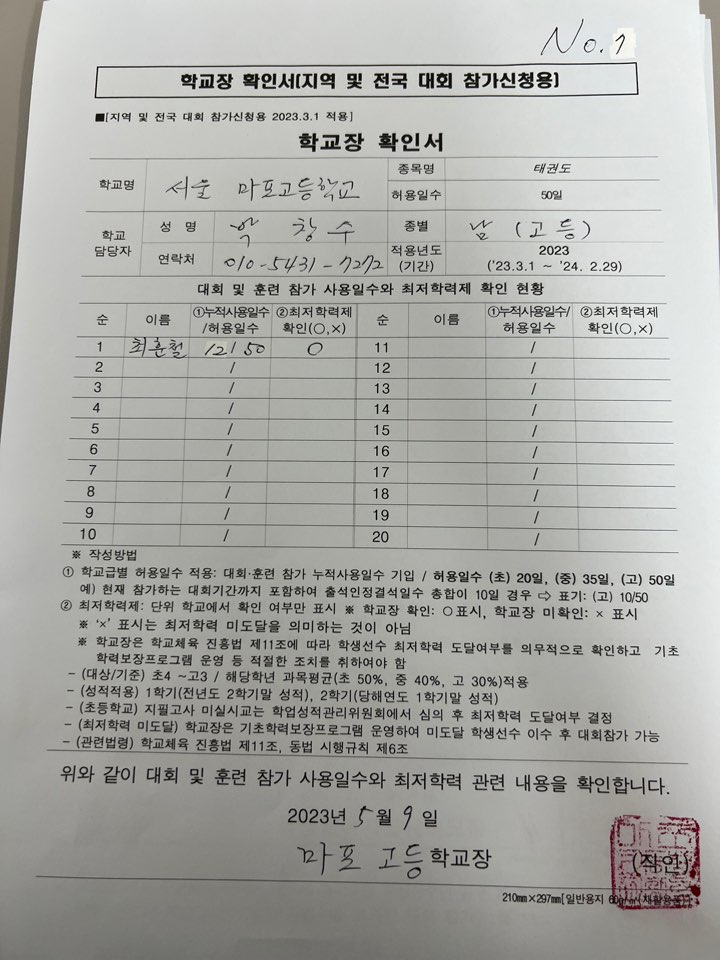 No.1
학교장 확인서(지역 및 전국 대회 참가신청용)
■[지역 및 전국 대회 참가신청용 2023.3.1 적용]
학교장 확인서
학교명 서울 마포고등학교 종목명 태권도
허용일수 50일
학교 담당자 성 명 창 수 종별 남 (고등)
연락처 010-5431-7272 적용년도 (기간) 2023 ('23.3.1 ~ '24. 2.29)
대회 및 훈련 참가 사용일수와 최저학력제 확인 현황
순 이름 ①누적사용일수/허용일수 ②최저학력제 확인(○,×) 순 이름 ①누적사용일수/허용일수 ②최저학력제 확인(○,×)
1 최훈철 12/50 ○ 11 /
2 / 12 /
3 / 13 /
4 / 14 /
5 / 15 /
6 / 16 /
7 / 17 /
8 / 18 /
9 / 19 /
10 / 20 /
※ 작성방법
① 학교급별 허용일수 적용: 대회·훈련 참가 누적사용일수 기입 / 허용일수 (초) 20일, (중) 35일, (고) 50일
예) 현재 참가하는 대회기간까지 포함하여 출석인정결석일수 총합이 10일 경우 ⇨ 표기: (고) 10/50
② 최저학력제: 단위 학교에서 확인 여부만 표시 ※ 학교장 확인: ○표시, 학교장 미확인: × 표시
※ '×' 표시는 최저학력 미도달을 의미하는 것이 아님
※ 학교장은 학교체육 진흥법 제11조에 따라 학생선수 최저학력 도달여부를 의무적으로 확인하고 기초
학력보장프로그램 운영 등 적절한 조치를 취하여야 함
- (대상/기준) 초4 ~고3 / 해당학년 과목평균(초 50%, 중 40%, 고 30%)적용
- (성적적용) 1학기(전년도 2학기말 성적), 2학기(당해연도 1학기말 성적)
- (초등학교) 지필고사 미실시교는 학업성적관리위원회에서 심의 후 최저학력 도달여부 결정
- (최저학력 미도달) 학교장은 기초학력보장프로그램 운영하여 미도달 학생선수 이수 후 대회참가 가능
- (관련법령) 학교체육 진흥법 제11조, 동법 시행규칙 제6조
위와 같이 대회 및 훈련 참가 사용일수와 최저학력 관련 내용을 확인합니다.
2023년 5월 9일
마포 고등학교장 (직인)
210㎜×297㎜[일반용지 60g/㎡(재활용품)]